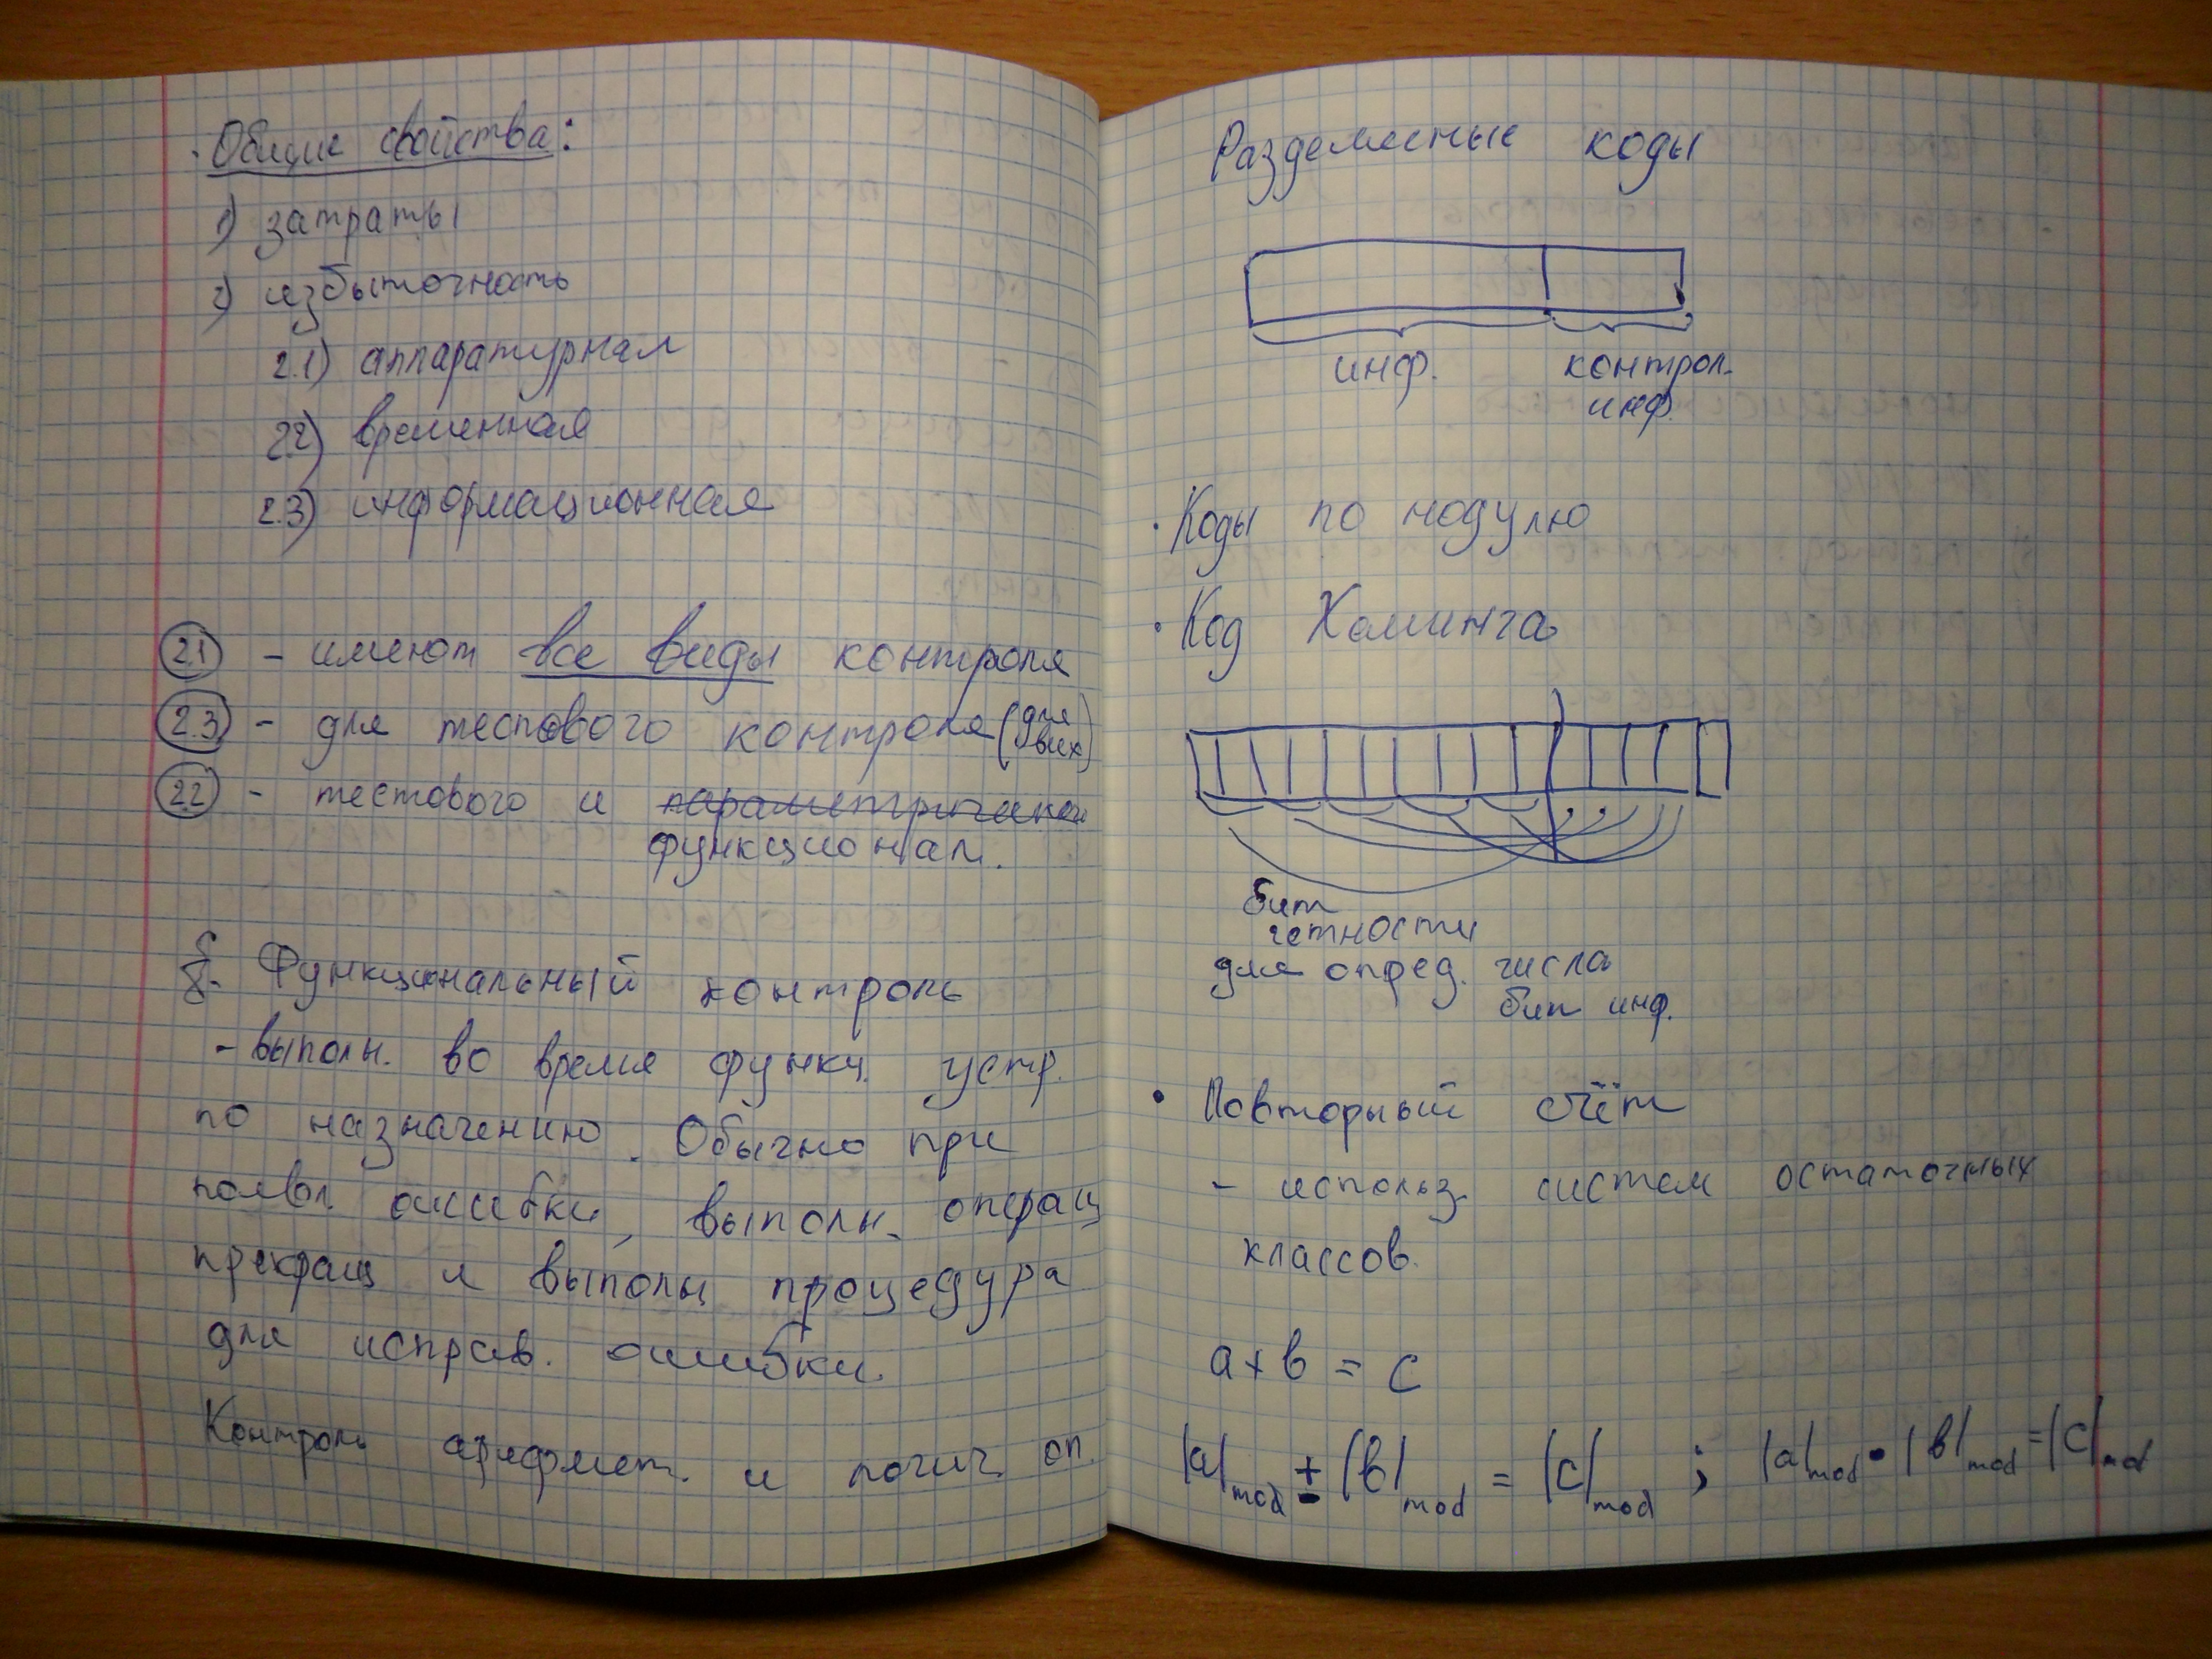 Общие свойства:
1) затраты
2) избыточность
2.1) аппаратурная
2.2) временная
2.3) информационная
2.1 - имеют все виды контроля
2.3 - для тестового контроля (для
2.2 - тестового и параметрическ
функционал.
§. Функциональный контроль
- выполн. во время функц. устр.
по назначению. Обычно при
появл. ошибки, выполн. операц
прекращ и выполн процедура
для исправ. ошибки.
Контроль арифмет. и логич. оп.
Разделенные коды
инф. контрол.
инф.
· Коды по модулю
· Код Хеминга
бит
четности
для опред. числа
бит инф.
· Повторный счёт
- использ. систем остаточных
классов.
a + b = c
|a|mod ± |b|mod = |c|mod ; |a|mod · |b|mod = |c|mod